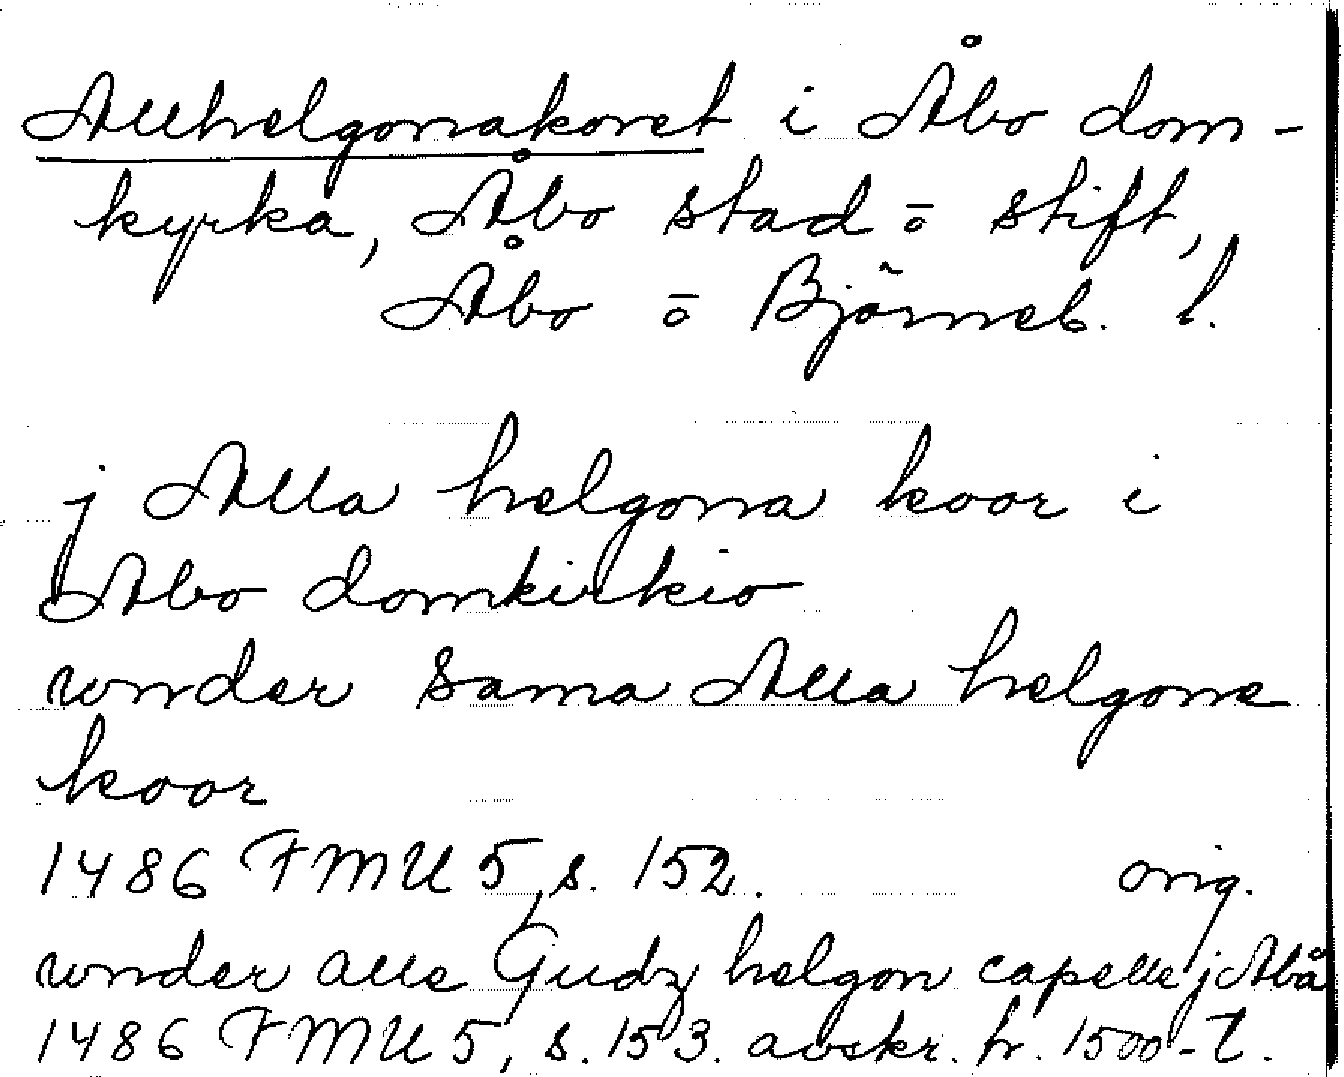 Allhelgonakoret i Åbo dom-
kyrka, Åbo stad ō stift,
Åbo ō Björneb. l.
j Alla helgona koor i
Abo domkirkio
wnder sama Alla helgone
koor
1486 FMU 5, s. 152. orig.
wnder alle Gudz helgon capelle j Abå
1486 FMU 5, s. 153. avskr. fr. 1500-t.